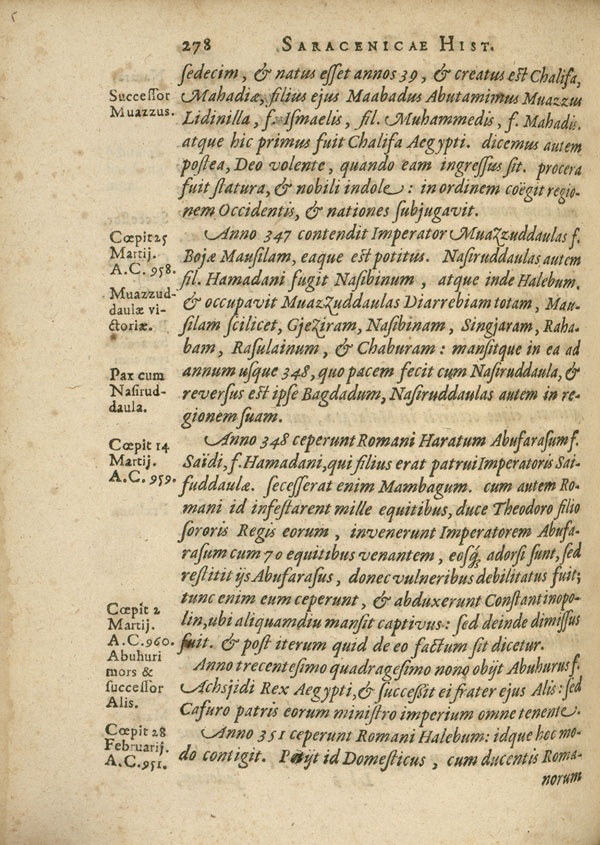 278 SARACENICAE HIST.
sedecim, & natus esset annos 39, & creatus est Chalifa,
Successor
Muazzus.
Mahadiæ, filius ejus Maabadus Abutamimus Muazzus
Lidinilla, f. Ismaelis, fil. Muhammedis, f. Mahadis.
atque hic primus fuit Chalifa Aegypti. dicemus autem
postea, Deo volente, quando eam ingressus sit. procera
fuit statura, & nobili indole: in ordinem coëgit regio-
nem Occidentis, & nationes subjugavit.
Cœpit 25
Martij.
A.C. 958.
Anno 347 contendit Imperator Muazzuddaulas f.
Bojæ Mausilam, eaque est potitus. Nasiruddaulas autem
fil. Hamadani fugit Nasibinum, atque inde Halebum.
Muazzud-
daulæ vi-
ctoriæ.
& occupavit Muazzuddaulas Diarrebiam totam, Mau-
silam scilicet, Gjeziram, Nasibinam, Singjaram, Raha-
bam, Rasulainum, & Chaburam: mansitque in ea ad
Pax cum
Nasirud-
daula.
annum usque 348, quo pacem fecit cum Nasiruddaula, &
reversus est ipse Bagdadum, Nasiruddaulas autem in re-
gionem suam.
Cœpit 14
Martij.
A.C. 959.
Anno 348 ceperunt Romani Haratum Abufarasum f.
Saïdi, f. Hamadani, qui filius erat patrui Imperatoris Sai-
fuddaulæ. secesserat enim Mambagum. cum autem Ro-
mani id infestarent mille equitibus, duce Theodoro filio
sororis Regis eorum, invenerunt Imperatorem Abufa-
rasum cum 70 equitibus venantem, eosq́; adorsi sunt, sed
restitit ijs Abufarasus, donec vulneribus debilitatus fuit;
tunc enim eum ceperunt, & abduxerunt Constantinopo-
Cœpit 2
Martij.
A.C. 960.
lin, ubi aliquamdiu mansit captivus: sed deinde dimissus
fuit. & post iterum quid de eo factum sit dicetur.
Abuhuri
mors &
successor
Alis.
Anno trecentesimo quadragesimo nono obijt Abuhurus f.
Achsjidi Rex Aegypti, & successit ei frater ejus Alis: sed
Cafuro patris eorum ministro imperium omne tenente.
Cœpit 28
Februarij.
A.C. 951.
Anno 351 ceperunt Romani Halebum: idque hoc mo-
do contigit. Petijt id Domesticus, cum ducentis Roma-
norum